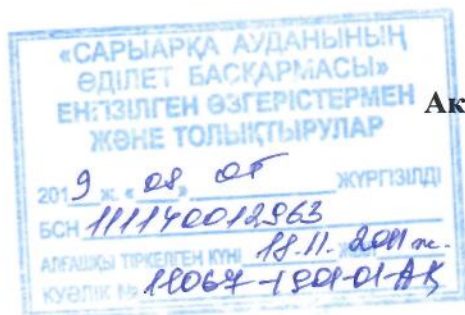 «САРЫАРҚА АУДАНЫНЫҢ
ӘДІЛЕТ БАСҚАРМАСЫ»
ЕНГІЗІЛГЕН ӨЗГЕРІСТЕРМЕН
ЖӘНЕ ТОЛЫҚТЫРУЛАР
Ак
2019 ж. «08» 05 ЖҮРГІЗІЛДІ
БСН 111140012963
АЛҒАШҚЫ ТІРКЕЛГЕН КҮНІ 18.11.2011 ж.
КУӘЛІК № 11067-1901-01-АҚ